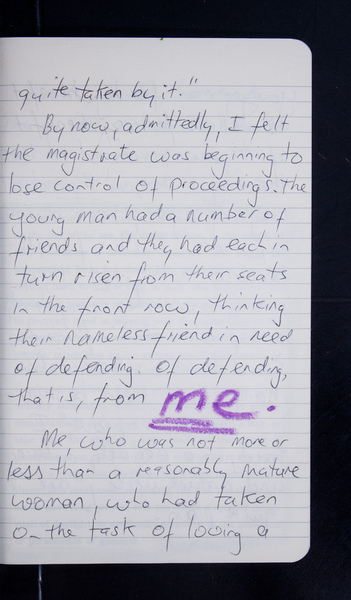 quite taken by it."
By now, admittedly, I felt
the magistrate was beginning to
lose control of proceedings. The
young man had a number of
friends and they had each in
turn risen from their seats
in the front row, thinking
their nameless friend in need
of defending. Of defending,
that is, from me.
Me, who was not more or
less than a reasonably mature
woman, who had taken
on the task of loving a